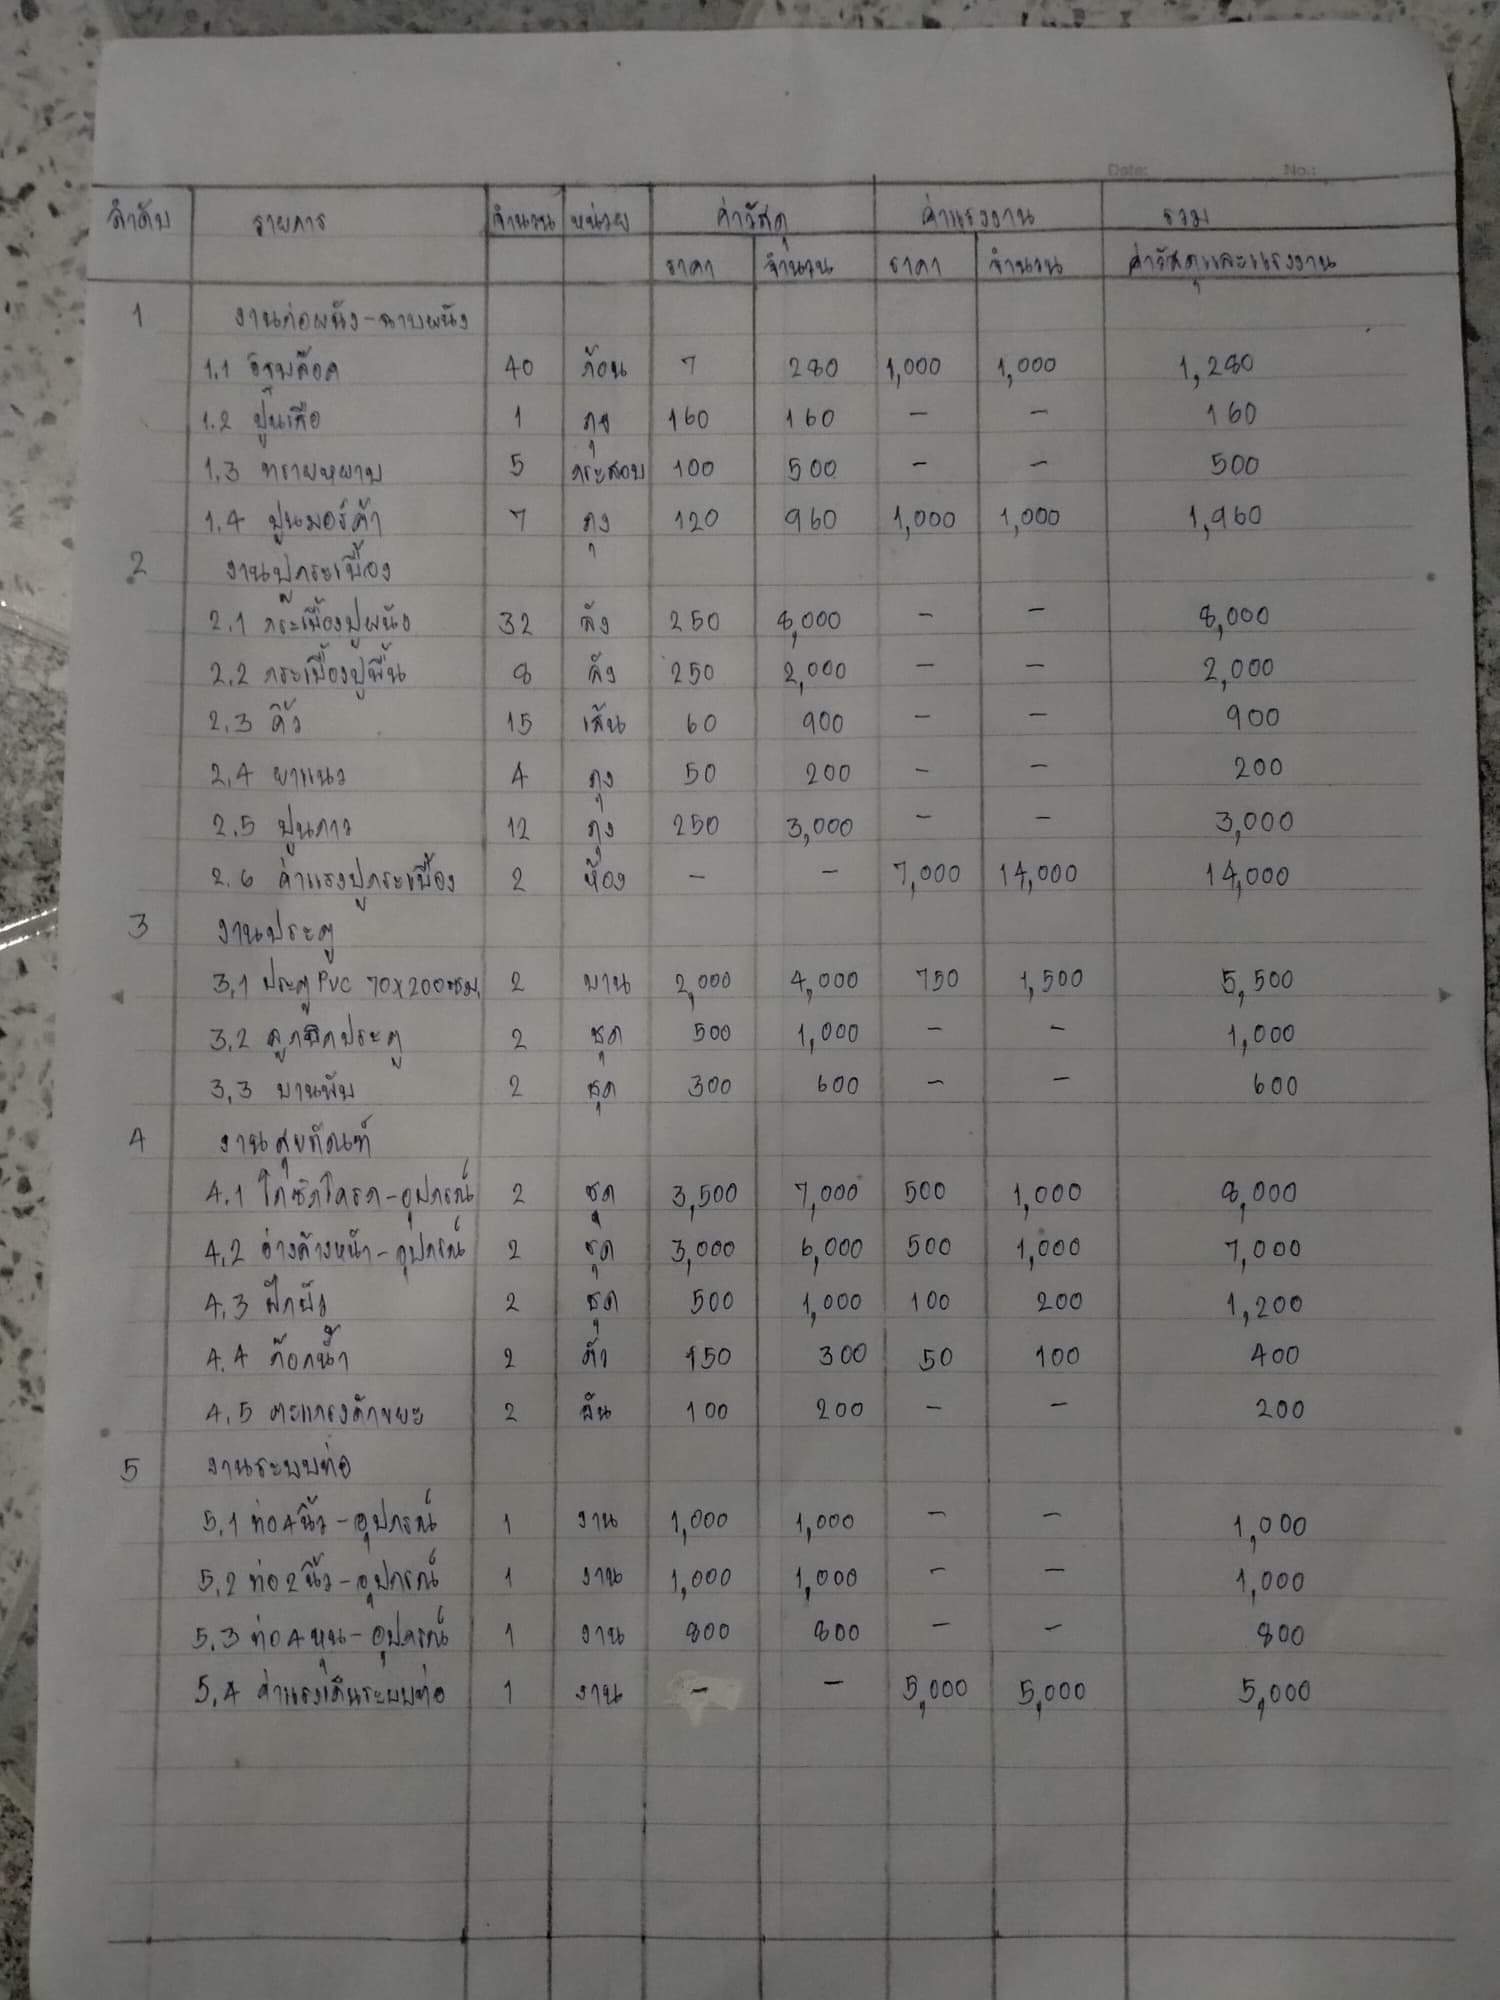 Date: No.:
ลำดับ รายการ จำนวน หน่วย ค่าวัสดุ ค่าแรงงาน รวม
ราคา จำนวน ราคา จำนวน ค่าวัสดุและแรงงาน
1 งานก่อผนัง-ฉาบผนัง
1.1 อิฐบล๊อค 40 ก้อน 7 280 1,000 1,000 1,280
1.2 ปูนเสือ 1 ถุง 160 160 - - 160
1.3 ทรายหยาบ 5 กระสอบ 100 500 - - 500
1.4 ปูนมอร์ต้า 7 ถุง 120 960 1,000 1,000 1,960
2 งานปูกระเบื้อง
2.1 กระเบื้องปูผนัง 32 ลัง 250 8,000 - - 8,000
2.2 กระเบื้องปูพื้น 8 ลัง 250 2,000 - - 2,000
2.3 คิ้ว 15 เส้น 60 900 - - 900
2.4 ยาแนว 4 ถุง 50 200 - - 200
2.5 ปูนกาว 12 ถุง 250 3,000 - - 3,000
2.6 ค่าแรงปูกระเบื้อง 2 ห้อง - - 7,000 14,000 14,000
3 งานประตู
3.1 ประตู PVC 70x200ซม. 2 บาน 2,000 4,000 750 1,500 5,500
3.2 ลูกบิดประตู 2 ชุด 500 1,000 - - 1,000
3.3 บานพับ 2 ชุด 300 600 - - 600
4 งานสุขภัณฑ์
4.1 โถชักโครก-อุปกรณ์ 2 ชุด 3,500 7,000 500 1,000 8,000
4.2 อ่างล้างหน้า-อุปกรณ์ 2 ชุด 3,000 6,000 500 1,000 7,000
4.3 ฝักบัว 2 ชุด 500 1,000 100 200 1,200
4.4 ก๊อกน้ำ 2 ตัว 150 300 50 100 400
4.5 ตะแกรงดักขยะ 2 อัน 100 200 - - 200
5 งานระบบท่อ
5.1 ท่อ4นิ้ว-อุปกรณ์ 1 งาน 1,000 1,000 - - 1,000
5.2 ท่อ2นิ้ว-อุปกรณ์ 1 งาน 1,000 1,000 - - 1,000
5.3 ท่อ4หุน-อุปกรณ์ 1 งาน 800 800 - - 800
5.4 ค่าแรงเดินระบบท่อ 1 งาน - - 5,000 5,000 5,000